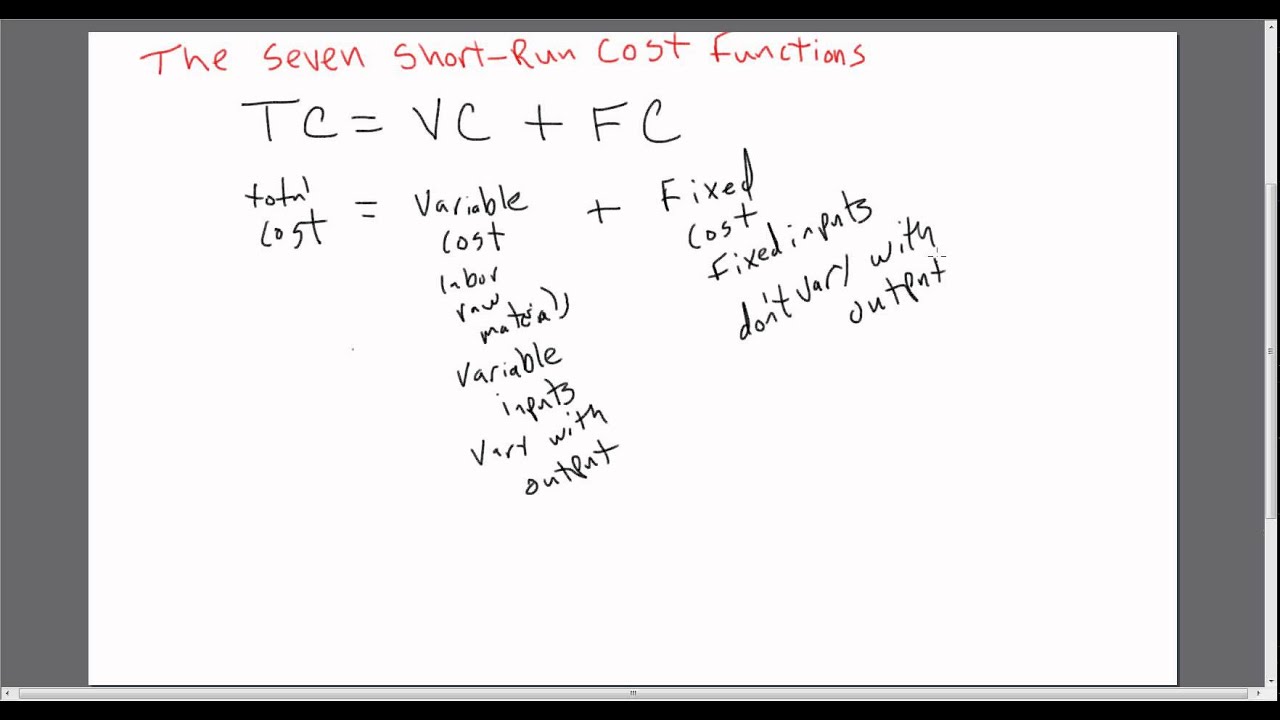 The Seven Short-Run Cost Functions
TC = VC + FC
total
cost
=
Variable
cost
labor
raw
materials
Variable
inputs
vary with
output
+
Fixed
cost
Fixed inputs
don't vary with
output